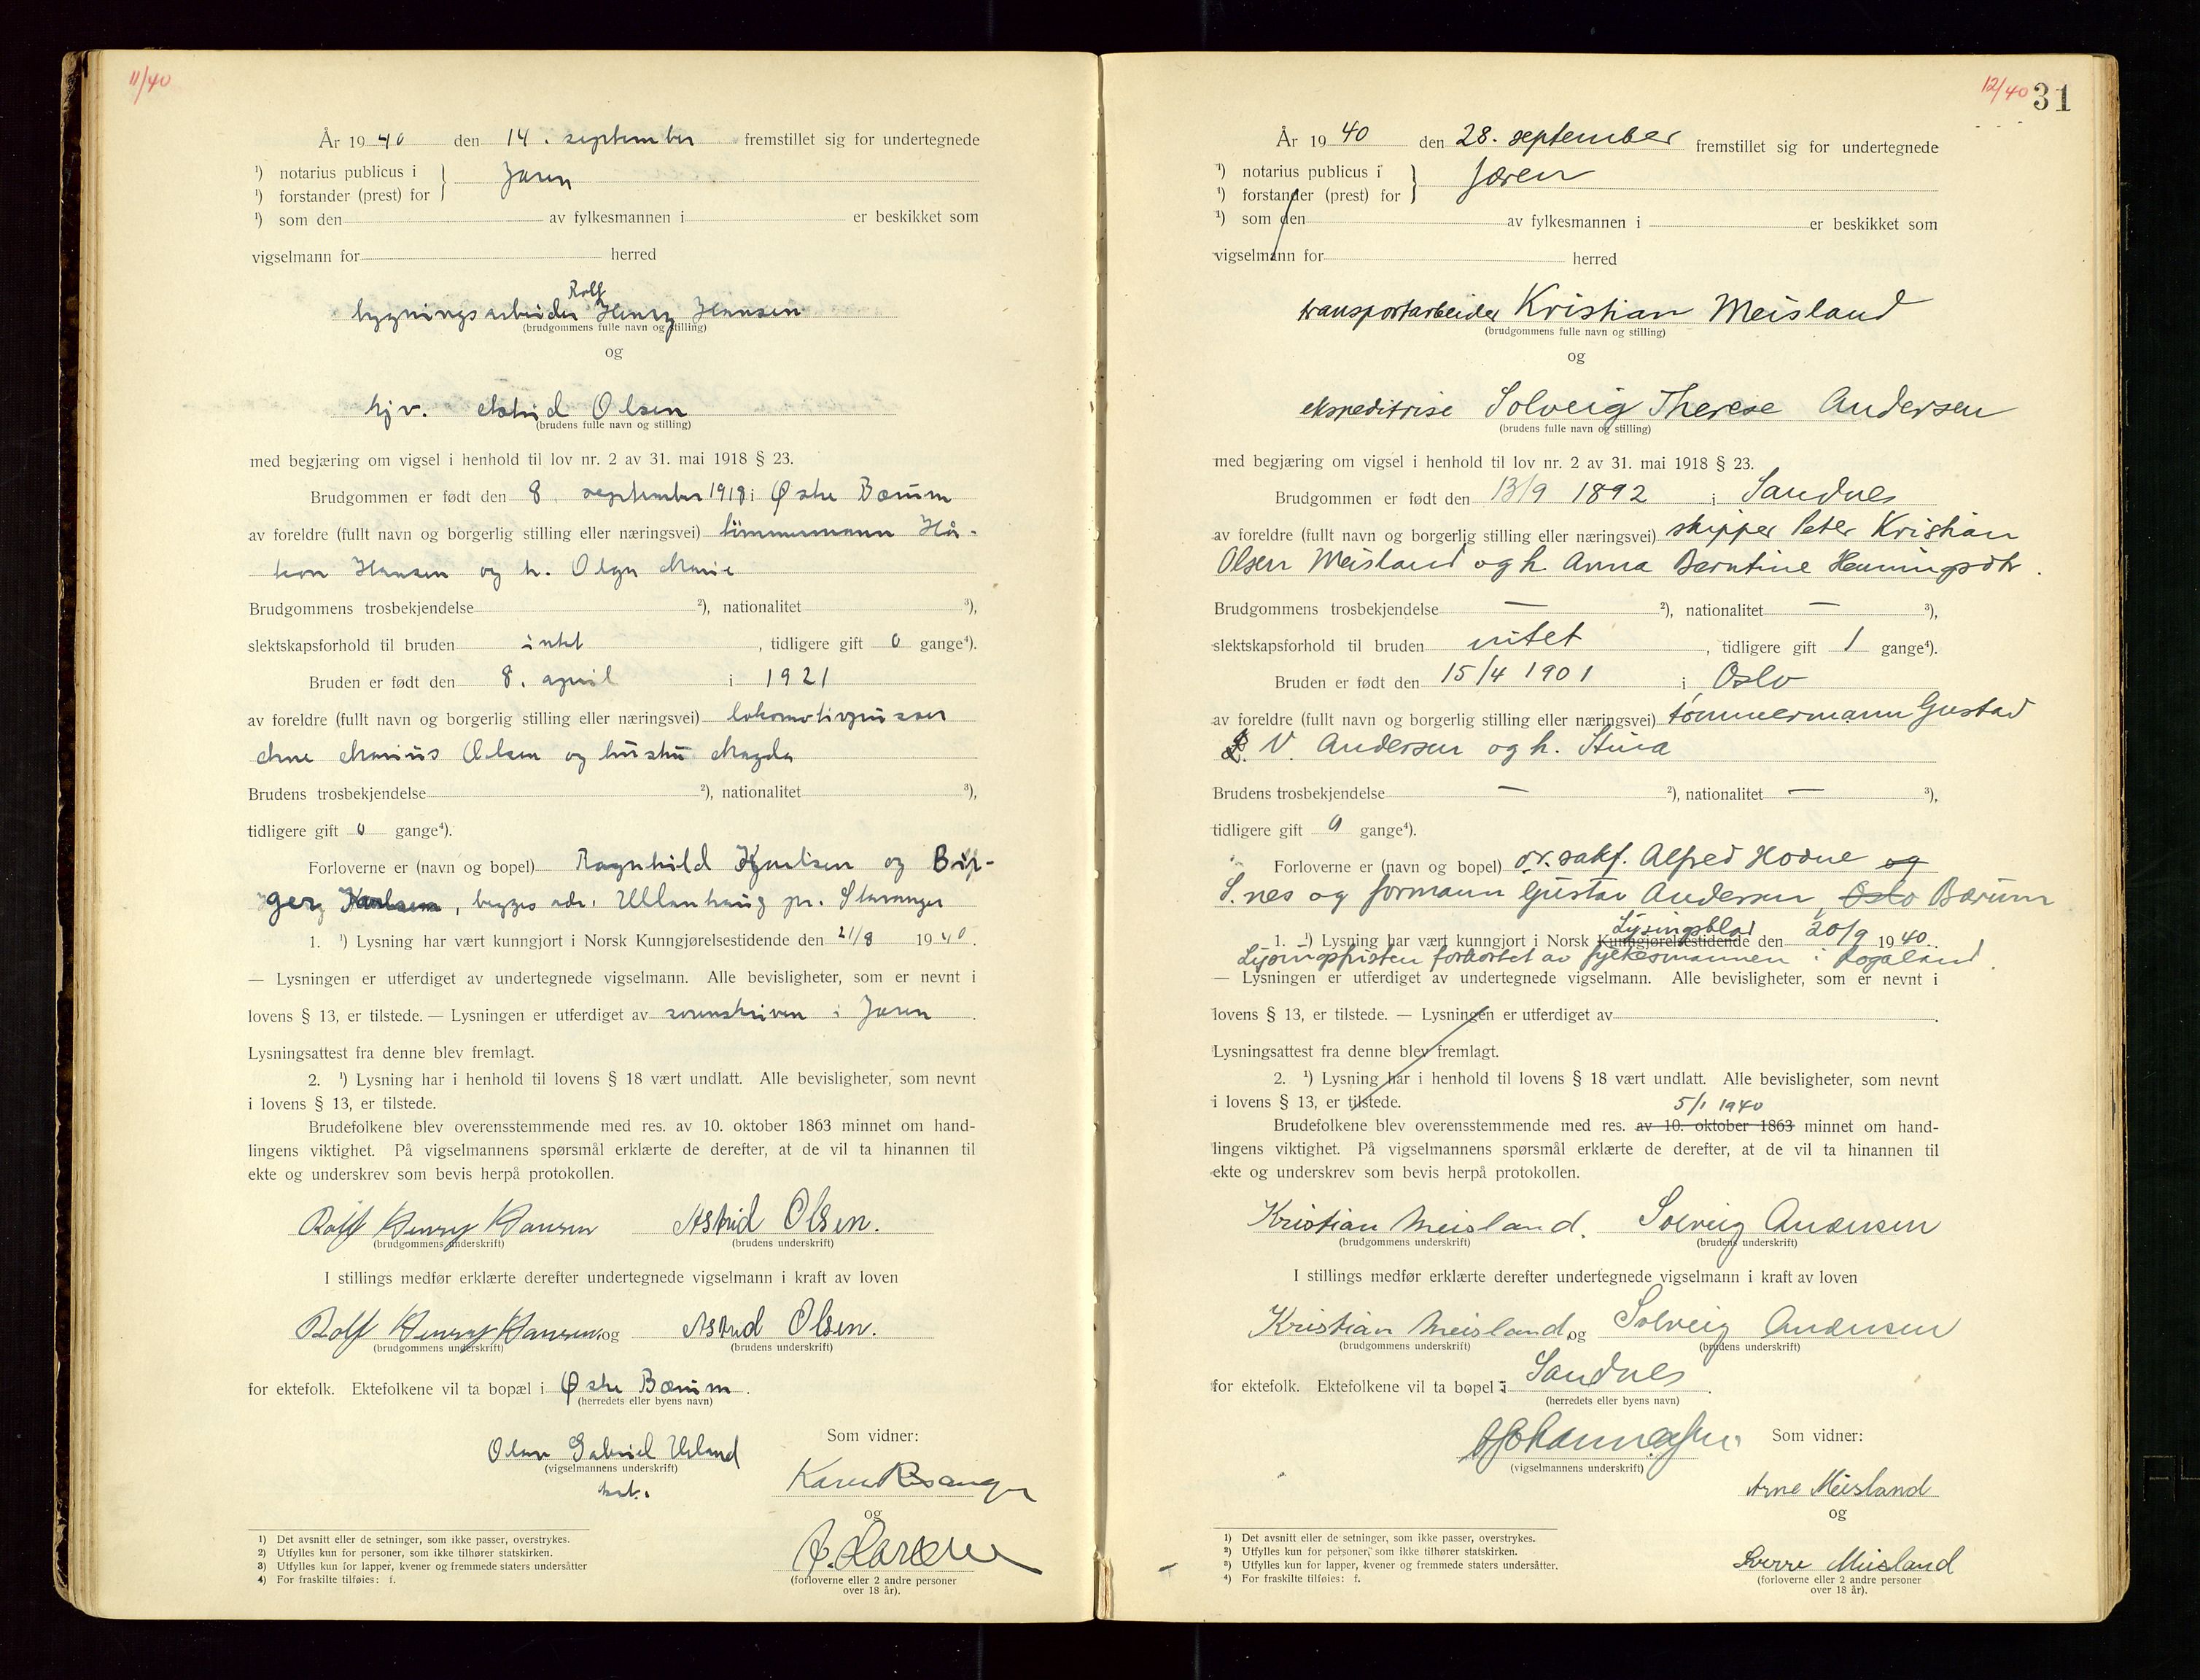 11/40
År 1940 den 14. september fremstillet sig for undertegnede
¹) notarius publicus i } Jæren
¹) forstander (prest) for
¹) som den av fylkesmannen i er beskikket som
vigselmann for herred
Rolf
bygningsarbeider Henry Hansen
(brudgommens fulle navn og stilling)
og
hjv. Astrid Olsen
(brudens fulle navn og stilling)
med begjæring om vigsel i henhold til lov nr. 2 av 31. mai 1918 § 23.
Brudgommen er født den 8. september 1918 i Østre Bærum
av foreldre (fullt navn og borgerlig stilling eller næringsvei) tømmermann Hå-
kon Hansen og h. Olga Marie
Brudgommens trosbekjendelse ²), nationalitet ³),
slektskapsforhold til bruden intet , tidligere gift 0 gange⁴).
Bruden er født den 8. april i 1921
av foreldre (fullt navn og borgerlig stilling eller næringsvei) lokomotivpusser
Arne Marius Olsen og hustru Magda
Brudens trosbekjendelse ²), nationalitet ³),
tidligere gift 0 gange⁴).
Forloverne er (navn og bopel) Ragnhild og Bir-
ger Karlsen, begges adr. Ullanhaug pr. Stavanger
1. ¹) Lysning har vært kunngjort i Norsk Kunngjørelsestidende den 21/8 1940.
— Lysningen er utferdiget av undertegnede vigselmann. Alle bevisligheter, som er nevnt i
lovens § 13, er tilstede. — Lysningen er utferdiget av sorenskriveren i Jæren.
Lysningsattest fra denne blev fremlagt.
2. ¹) Lysning har i henhold til lovens § 18 vært undlatt. Alle bevisligheter, som nevnt
i lovens § 13, er tilstede.
Brudefolkene blev overensstemmende med res. av 10. oktober 1863 minnet om hand-
lingens viktighet. På vigselmannens spørsmål erklærte de derefter, at de vil ta hinannen til
ekte og underskrev som bevis herpå protokollen.
Rolf Henry Hansen Astrid Olsen.
(brudgommens underskrift) (brudens underskrift)
I stillings medfør erklærte derefter undertegnede vigselmann i kraft av loven
Rolf Henry Hansen og Astrid Olsen.
(brudgommens underskrift) (brudens underskrift)
for ektefolk. Ektefolkene vil ta bopæl i Østre Bærum.
(herredets eller byens navn)
Som vidner:
Olav Gabriel Ueland
(vigselmannens underskrift)
Karen
og
(forloverne eller 2 andre personer
over 18 år).
1) Det avsnitt eller de setninger, som ikke passer, overstrykes.
2) Utfylles kun for personer, som ikke tilhører statskirken.
3) Utfylles kun for lapper, kvener og fremmede staters undersåtter
4) For fraskilte tilføies: f.
12/40 31
År 1940 den 28. september fremstillet sig for undertegnede
¹) notarius publicus i } Jæren
¹) forstander (prest) for
¹) som den av fylkesmannen i er beskikket som
vigselmann for herred
transportarbeider Kristian Meisland
(brudgommens fulle navn og stilling)
og
ekspeditrise Solveig Therese Andersen
(brudens fulle navn og stilling)
med begjæring om vigsel i henhold til lov nr. 2 av 31. mai 1918 § 23.
Brudgommen er født den 13/9 1892 i Sandnes
av foreldre (fullt navn og borgerlig stilling eller næringsvei) skipper Peter Kristian
Olsen Meisland og h. Anna Berntine Henningsdtr.
Brudgommens trosbekjendelse — ²), nationalitet — ³),
slektskapsforhold til bruden intet , tidligere gift 1 gange⁴).
Bruden er født den 15/4 1901 i Oslo
av foreldre (fullt navn og borgerlig stilling eller næringsvei) tømmermann Gustav
V. Andersen og h. Stina
Brudens trosbekjendelse — ²), nationalitet — ³),
tidligere gift 0 gange⁴).
Forloverne er (navn og bopel) o.r.sakf. Alfred Hovne og
S.nes og formann Gustav Andersen, Oslo Bærum
Lysingsblad
1. ¹) Lysning har vært kunngjort i Norsk Kunngjørelsestidende den 20/9 1940.
Lysingsfristen forkortet av fylkesmannen i Rogaland.
— Lysningen er utferdiget av undertegnede vigselmann. Alle bevisligheter, som er nevnt i
lovens § 13, er tilstede. — Lysningen er utferdiget av .
Lysningsattest fra denne blev fremlagt.
2. ¹) Lysning har i henhold til lovens § 18 vært undlatt. Alle bevisligheter, som nevnt
i lovens § 13, er tilstede.
5/1 1940
Brudefolkene blev overensstemmende med res. av 10. oktober 1863 minnet om hand-
lingens viktighet. På vigselmannens spørsmål erklærte de derefter, at de vil ta hinannen til
ekte og underskrev som bevis herpå protokollen.
Kristian Meisland. Solveig Andersen
(brudgommens underskrift) (brudens underskrift)
I stillings medfør erklærte derefter undertegnede vigselmann i kraft av loven
Kristian Meisland og Solveig Andersen
(brudgommens underskrift) (brudens underskrift)
for ektefolk. Ektefolkene vil ta bopel i Sandnes.
(herredets eller byens navn)
Som vidner:
(vigselmannens underskrift)
Arne Meisland
og
Sverre Meisland
(forloverne eller 2 andre personer
over 18 år).
1) Det avsnitt eller de setninger, som ikke passer, overstrykes.
2) Utfylles kun for personer, som ikke tilhører statskirken.
3) Utfylles kun for lapper, kvener og fremmede staters undersåtter.
4) For fraskilte tilføies: f.